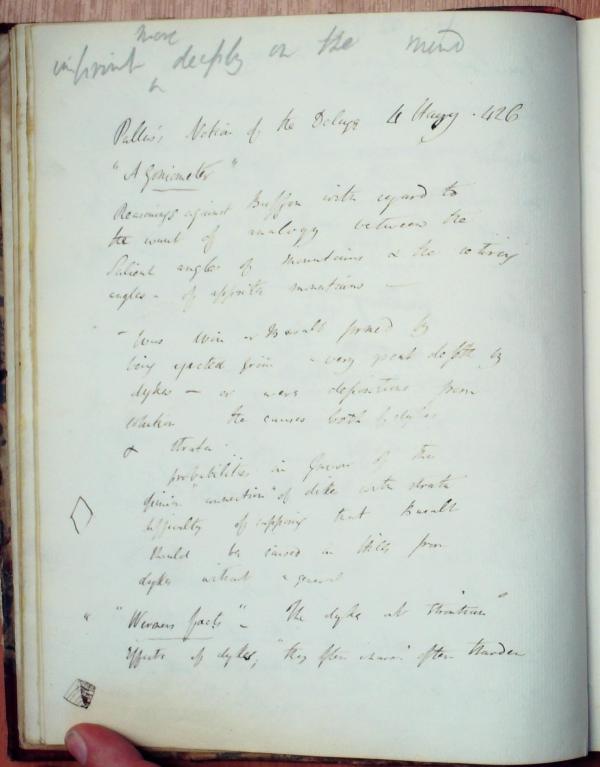 more
imprint deeply on the mind
Pallas's Notion of the Deluge 4
"A Goniometer"
Reasonings against Buffon with regard to
the want of analogy between the
Salient angles of mountains & the
angles - of opposite mountains -
- basalt formed by
being ejected from a very great depth by
dykes - or were depositions from
solution the causes both of dykes
& strata -
probabilities in favour of the
"connection" of dike with strata
difficulty of supposing that Basalt
should be in Hills from
dykes without a general
" "Werners facts" - The dyke at
Effects of dykes; "they often often Harden